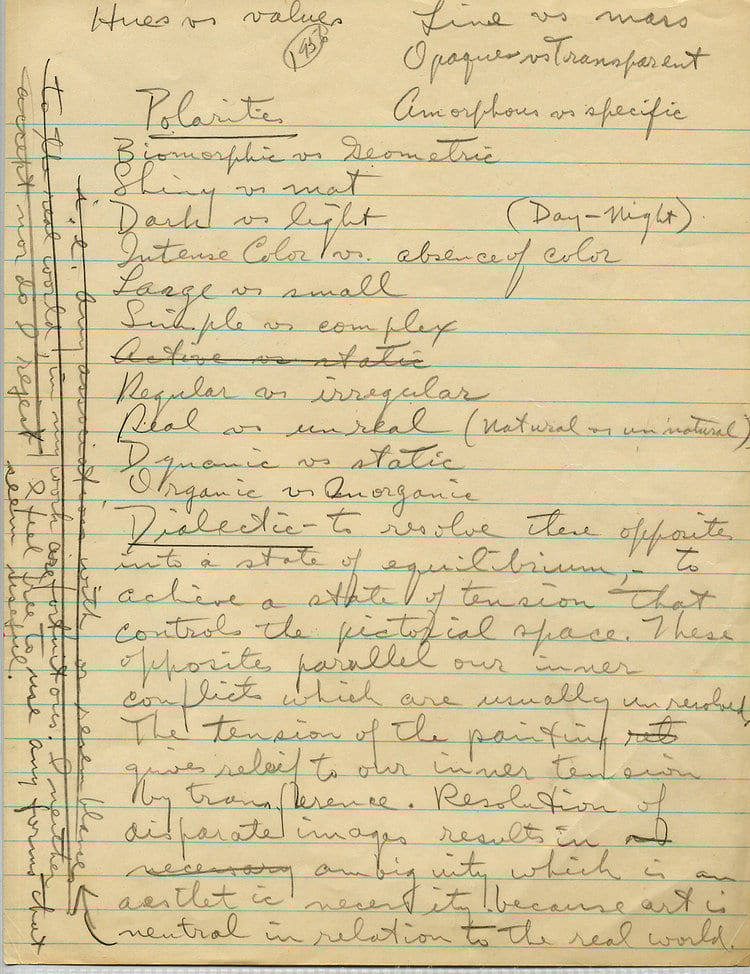 Hues vs values
Line vs mass
1950
Opaque vs Transparent
Polarities
Amorphous vs specific
Biomorphic vs Geometric
Shiny vs mat
Dark vs light (Day-Night)
Intense Color vs. absence of color
Large vs small
Simple vs complex
Active vs static
Regular vs irregular
Real vs unreal (Natural vs un natural)
Dynamic vs static
Organic vs Inorganic
Dialectic - to resolve these opposites
into a state of equilibrium, - to
achieve a state of tension that
controls the pictorial space. These
opposites parallel our inner
conflicts which are usually unresolved
The tension of the painting
gives releif to our inner tension
by transference. Resolution of
disparate images results in
necessary ambiguity which is an
aesthetic necessity because art is
neutral in relation to the real world.
i.e. any associations with or resemblances
to the real world, in my work are fortuitous. I neither
accept nor do I reject, I feel free to use any forms that
seem useful.